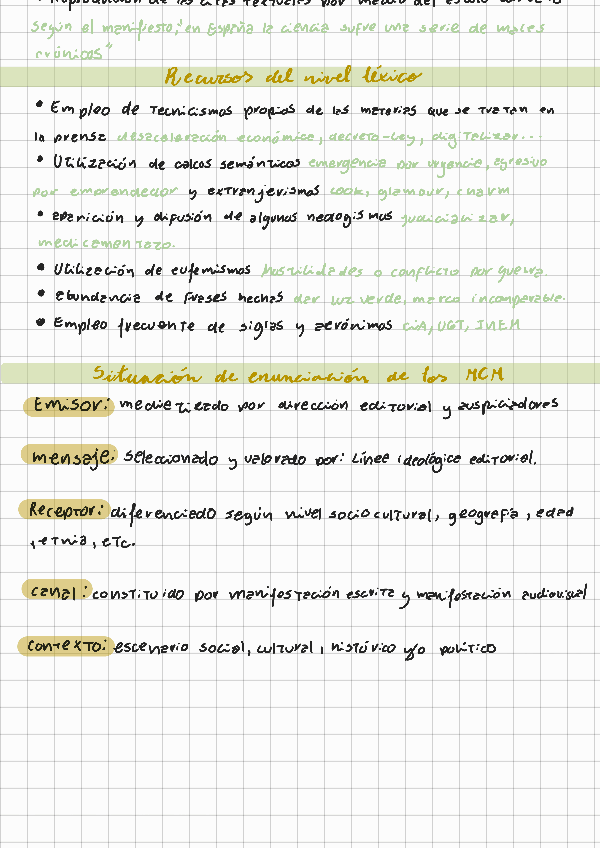 • Reproducción de las citas textuales por medio del estilo directo
según el manifiesto, "en España la ciencia sufre una serie de males
crónicos"
Recursos del nivel léxico
• Empleo de tecnicismos propios de las materias que se tratan en
la prensa desaceleración económica, decreto-ley, digitalizar...
• Utilización de calcos semánticos emergencia por urgencia, agresivo
por emprendedor y extranjerismos look, glamour, charm
• aparición y difusión de algunos neologismos judicializar,
medicamentazo.
• Utilización de eufemismos hostilidades o conflicto por guerra.
• abundancia de frases hechas dar luz verde, marco incomparable.
• Empleo frecuente de siglas y acrónimos CIA, UGT, INEM
Situación de enunciación de los MCM
Emisor: mediatizado por dirección editorial y auspiciadores
mensaje: seleccionado y valorado por: Línea ideológica editorial.
Receptor: diferenciado según nivel sociocultural, geografía, edad
, etnia, etc.
canal: constituido por manifestación escrita y manifestación audiovisual
contexto: escenario social, cultural, histórico y/o político